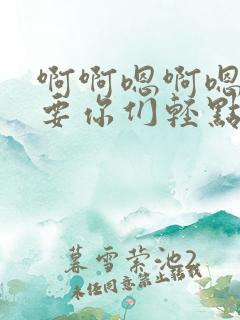 啊啊嗯啊嗯
要你们轻點
暮雪萦池2
未经同意禁止转载